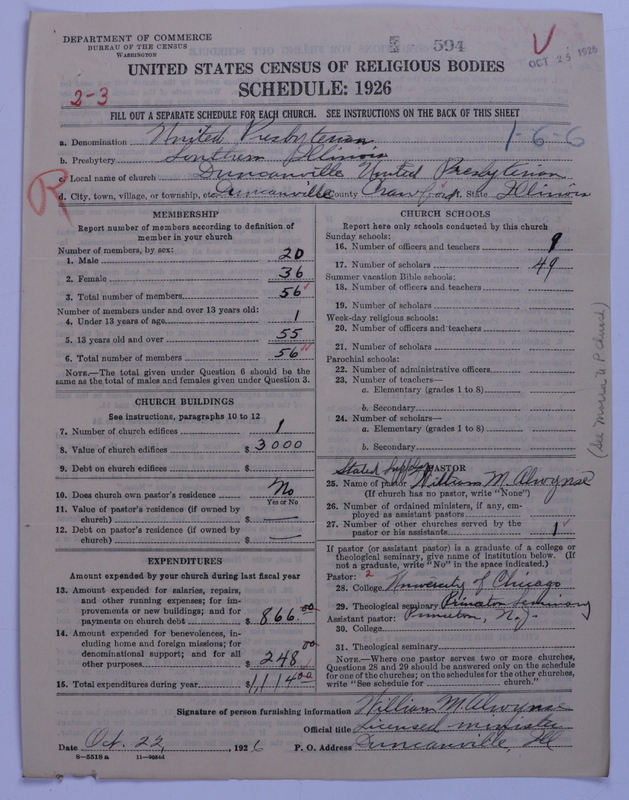 DEPARTMENT OF COMMERCE
BUREAU OF THE CENSUS
WASHINGTON
594
V
OCT 25 1926
UNITED STATES CENSUS OF RELIGIOUS BODIES
SCHEDULE: 1926
2-3
FILL OUT A SEPARATE SCHEDULE FOR EACH CHURCH. SEE INSTRUCTIONS ON THE BACK OF THIS SHEET
1-6-6
a. Denomination United Presbyterian
b. Presbytery Southern Illinois
c. Local name of church Duncanville United Presbyterian
R
d. City, town, village, or township, etc. Duncanville County Crawford State Illinois
MEMBERSHIP
Report number of members according to definition of
member in your church
Number of members, by sex:
1. Male 20
2. Female 36
3. Total number of members 56
Number of members under and over 13 years old:
4. Under 13 years of age 1
5. 13 years old and over 55
6. Total number of members 56
NOTE.—The total given under Question 6 should be the
same as the total of males and females given under Question 3.
CHURCH BUILDINGS
See instructions, paragraphs 10 to 12
7. Number of church edifices 1
8. Value of church edifices $ 3000
9. Debt on church edifices $
10. Does church own pastor's residence No
Yes or No
11. Value of pastor's residence (if owned by
church) $ —
12. Debt on pastor's residence (if owned by
church) $ —
EXPENDITURES
Amount expended by your church during last fiscal year
13. Amount expended for salaries, repairs,
and other running expenses; for im-
provements or new buildings; and for
payments on church debt $ 866.00
14. Amount expended for benevolences, in-
cluding home and foreign missions; for
denominational support; and for all
other purposes $ 248.00
15. Total expenditures during year $ 1,114.00
CHURCH SCHOOLS
Report here only schools conducted by this church
Sunday schools:
16. Number of officers and teachers 9
17. Number of scholars 49
Summer vacation Bible schools:
18. Number of officers and teachers
19. Number of scholars
Week-day religious schools:
20. Number of officers and teachers
21. Number of scholars
Parochial schools:
22. Number of administrative officers
23. Number of teachers—
a. Elementary (grades 1 to 8)
b. Secondary
24. Number of scholars—
a. Elementary (grades 1 to 8)
b. Secondary
Stated Supply PASTOR
25. Name of pastor William M. Alwynse
(If church has no pastor, write "None")
26. Number of ordained ministers, if any, em-
ployed as assistant pastors
27. Number of other churches served by the
pastor or his assistants 1
If pastor (or assistant pastor) is a graduate of a college or
theological seminary, give name of institution below. (If
not a graduate, write "No" in the space indicated.)
Pastor: 2
28. College University of Chicago
29. Theological seminary Princeton Seminary
Assistant pastor: Princeton, N.J.
30. College
31. Theological seminary
NOTE.—Where one pastor serves two or more churches,
Questions 28 and 29 should be answered only on the schedule
for one of the churches; on the schedules for the other churches,
write "See schedule for church."
Signature of person furnishing information William M. Alwynse
Official title Licensed minister
Date Oct. 22, 1926 P. O. Address Duncanville, Ill
8-5518a